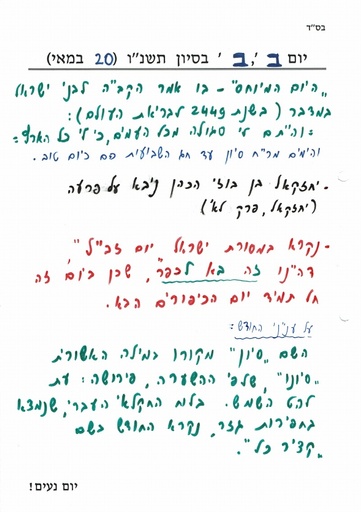 בס״ד
יום ב׳, ב׳ בסיון תשנ״ו (20 במאי)
״היום המיוחס״ - בו אמר הקב״ה לבני ישראל
במדבר (בשנת 2449 לבריאת העולם):
״והייתם לי סגולה מכל העמים, כי לי כל הארץ״
והימים מר״ח סיון עד חג השבועות הם כיום טוב.
- יחזקאל בן בוזי הכהן ניבא על פרעה
(יחזקאל, פרק לא׳)
- נקרא במסורת ישראל יום זב״ל,
דהיינו זה בא לכפר, שכן ביום זה
חל תמיד יום הכיפורים הבא.
על עניני החודש:
השם ״סיון״ מקורו במילה האשורית
״סיוונו״, שלפי ההשערה, פירושה: עת
להט השמש. בלוח החקלאי העברי, שנמצא
בחפירות גזר, נקרא החודש בשם
״קציר כל״.
יום נעים!